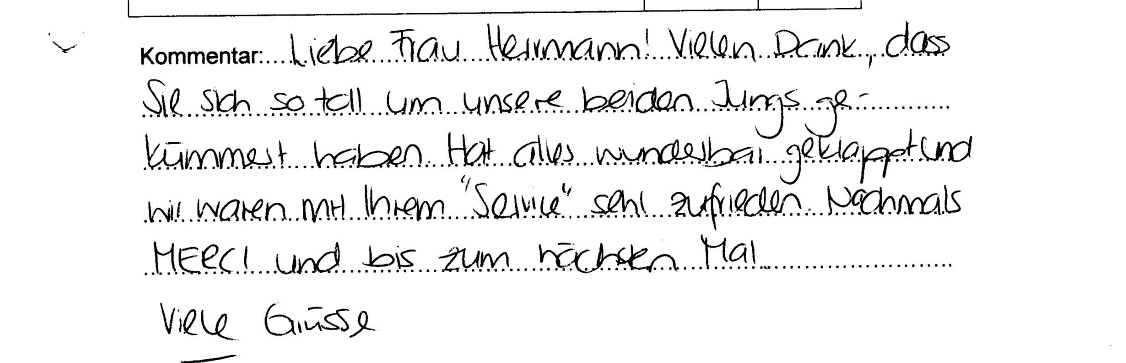 Kommentar: Liebe Frau Herrmann! Vielen Dank, dass
Sie sich so toll um unsere beiden Jungs ge-
kümmert haben. Hat alles wunderbar geklappt und
wir waren mit Ihrem "Service" sehr zufrieden. Nochmals
MERCI und bis zum nächsten Mal
Viele Grüsse